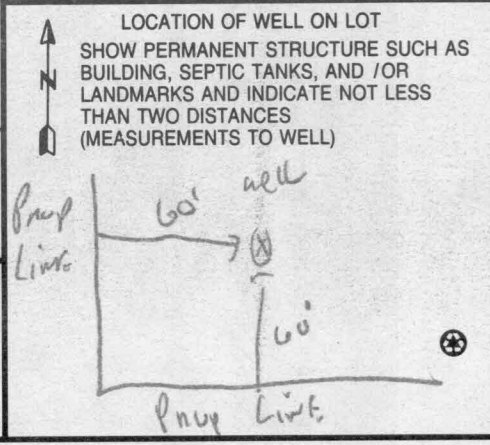 LOCATION OF WELL ON LOT
SHOW PERMANENT STRUCTURE SUCH AS
BUILDING, SEPTIC TANKS, AND /OR
LANDMARKS AND INDICATE NOT LESS
THAN TWO DISTANCES
(MEASUREMENTS TO WELL)
N
well
Prop
Line
60'
X
60'
Prop Line